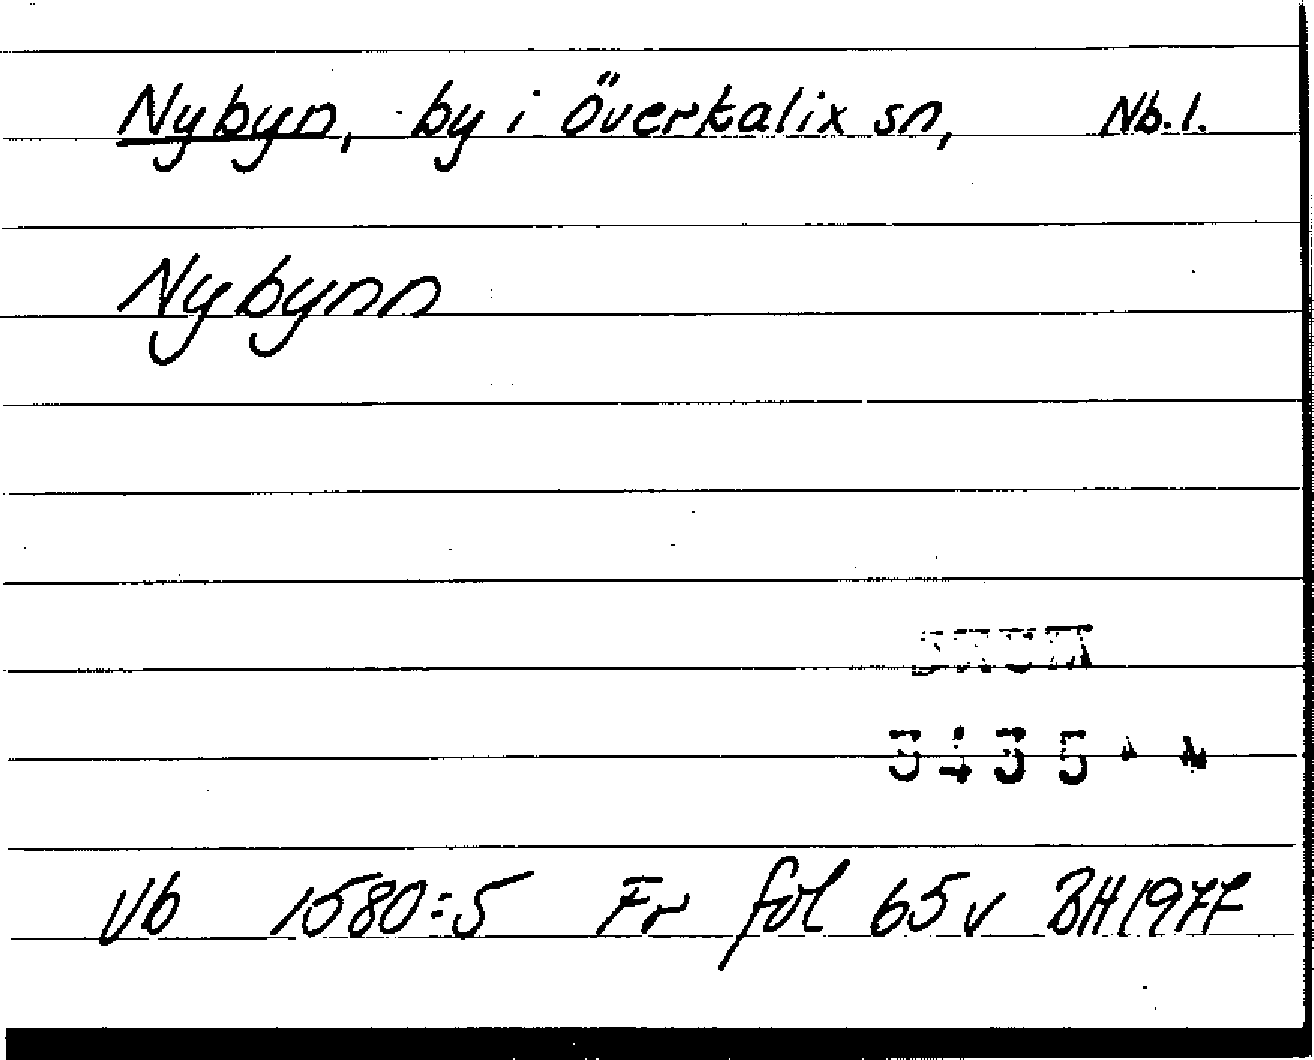 Nybyn, by i Överkalix sn, Nb.l.
Nybynn
Vb 1580:5 Fr fol 65v BH1977